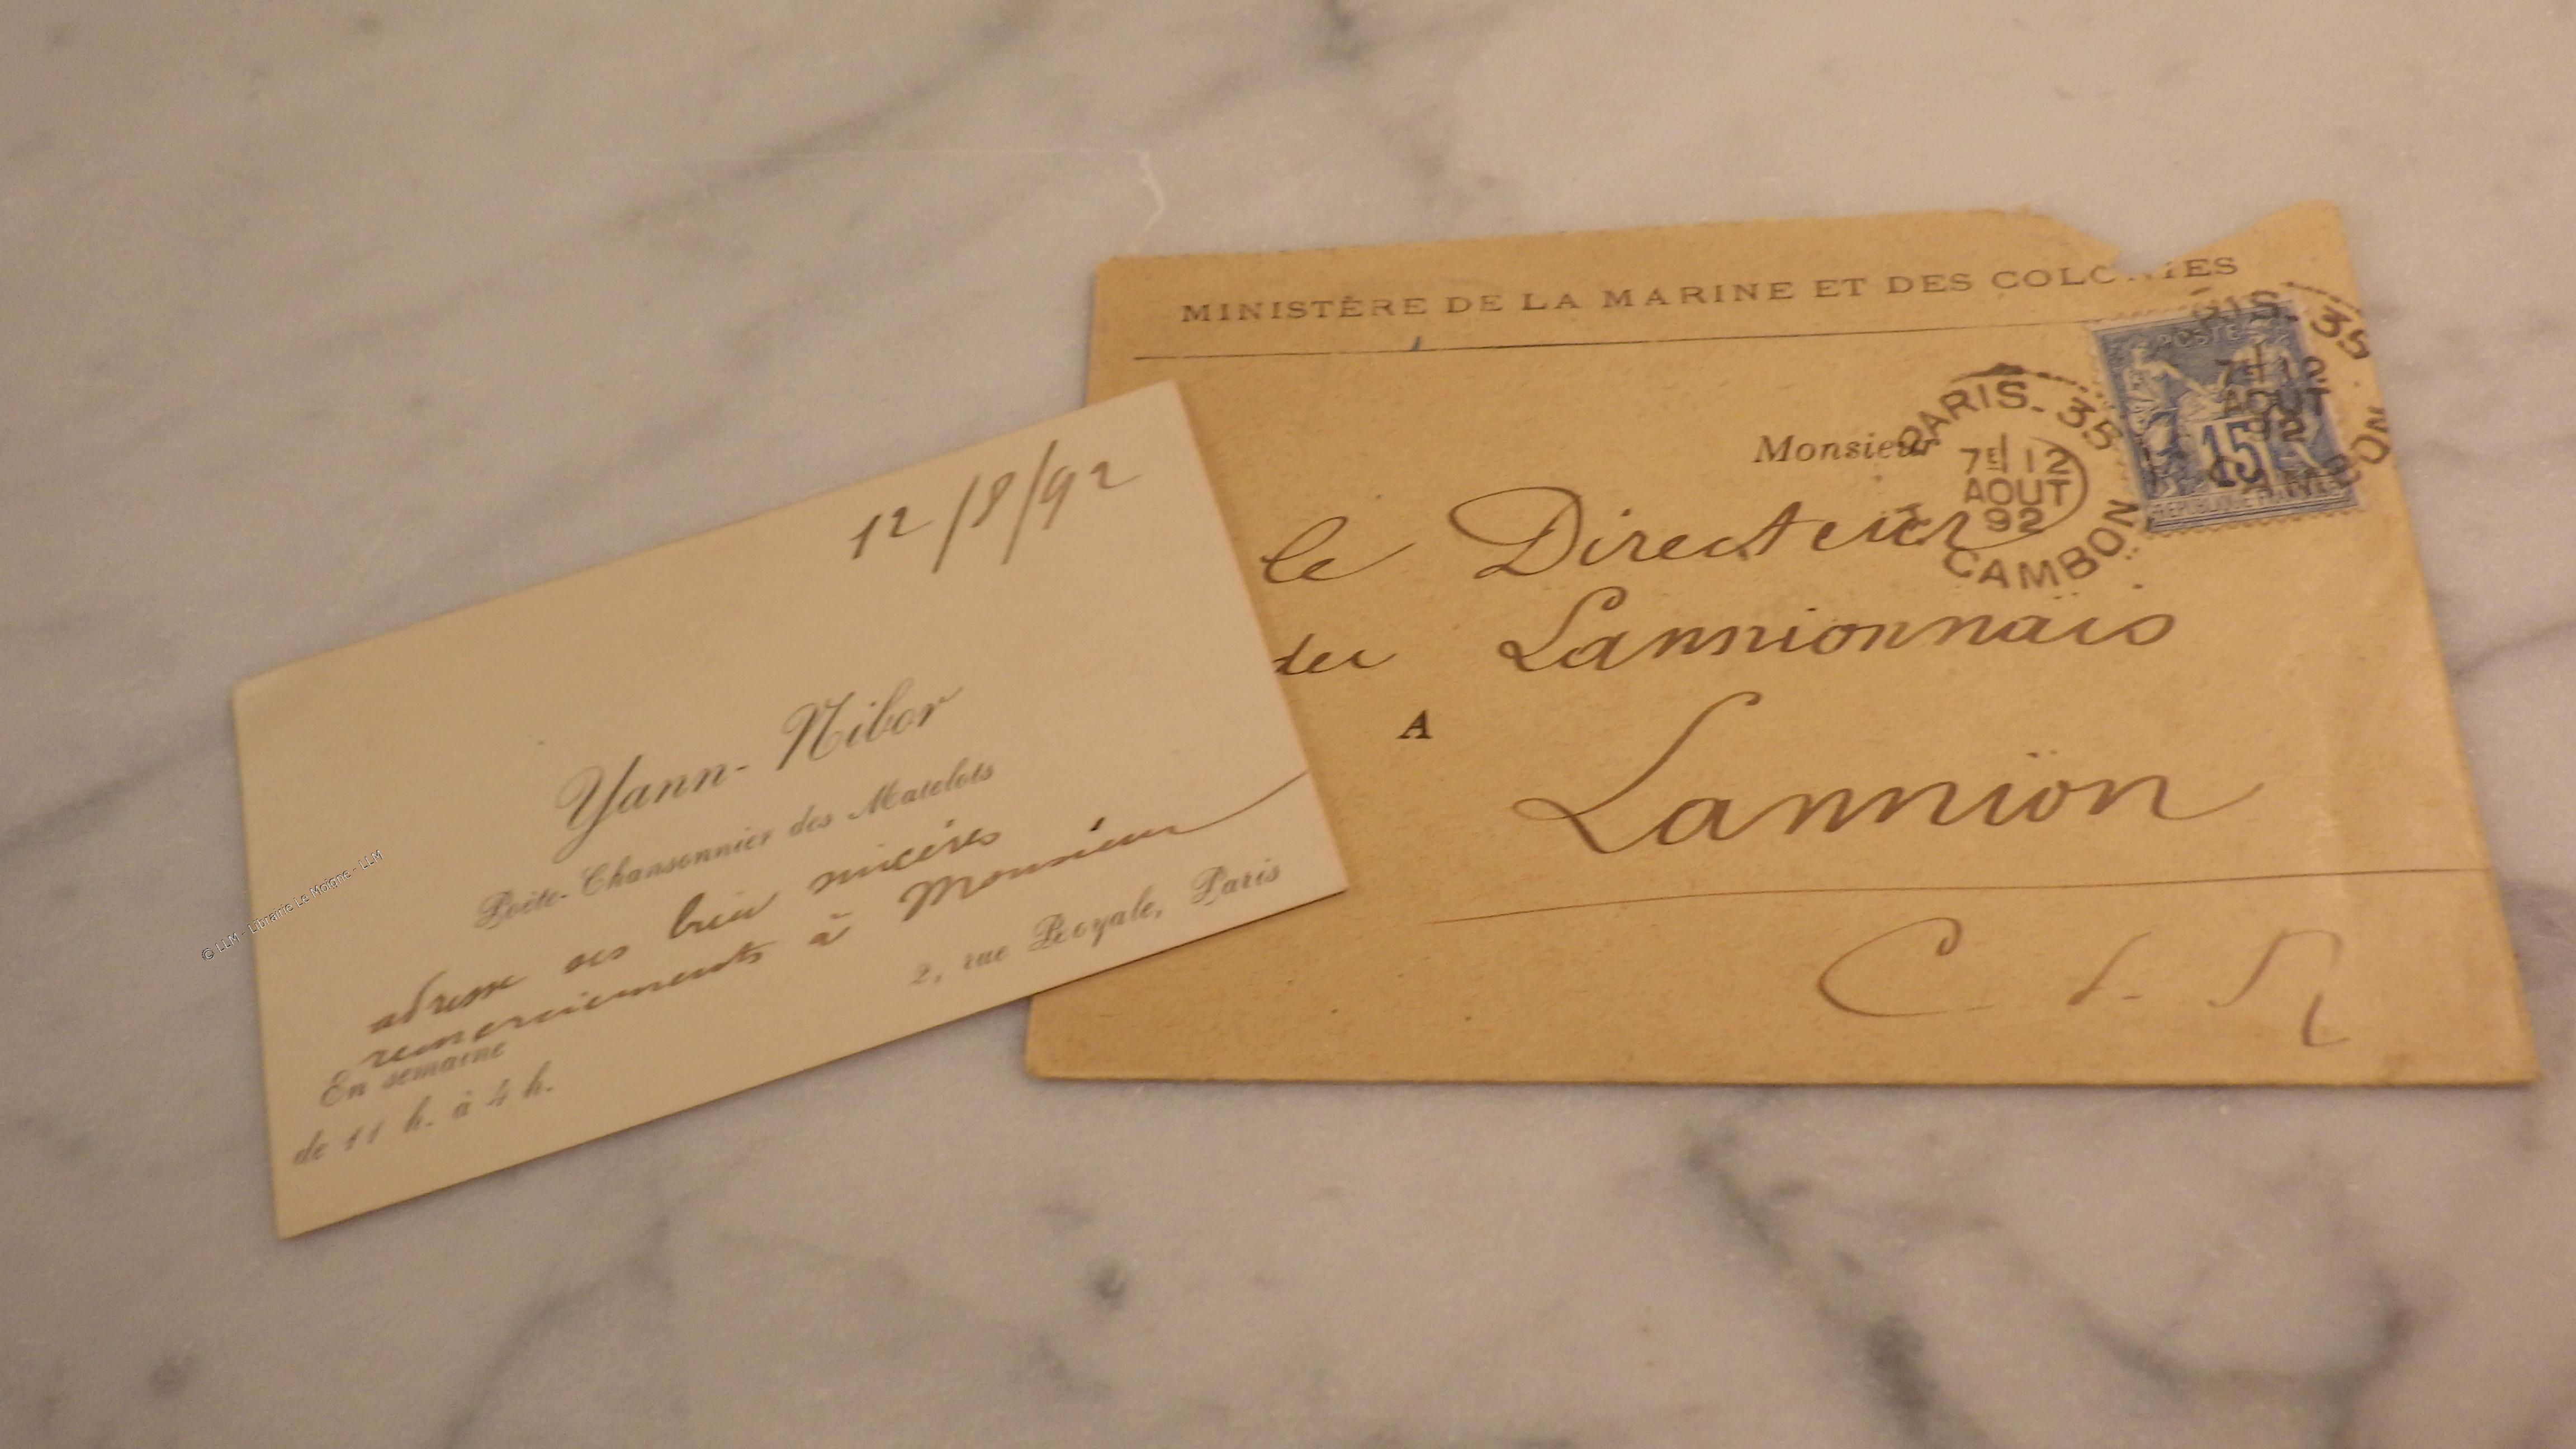 12/8/92
Yann-Nibor
Poète-Chansonnier des Matelots
adresse ses bien sincères
remerciements à Monsieur
2, rue Royale, Paris
En semaine
de 11 h. à 4 h.
© LLM - Librairie Le Moigne - LLM
MINISTÈRE DE LA MARINE ET DES COLONIES
Monsieur
le Directeur
du Lannionnais
A
Lannion
C d N
PARIS - 35
7E 12
AOUT
92
CAMBON
PARIS - 35
7E 12
AOUT
92
CAMBON
POSTES
15
REPUBLIQUE FRANÇAISE